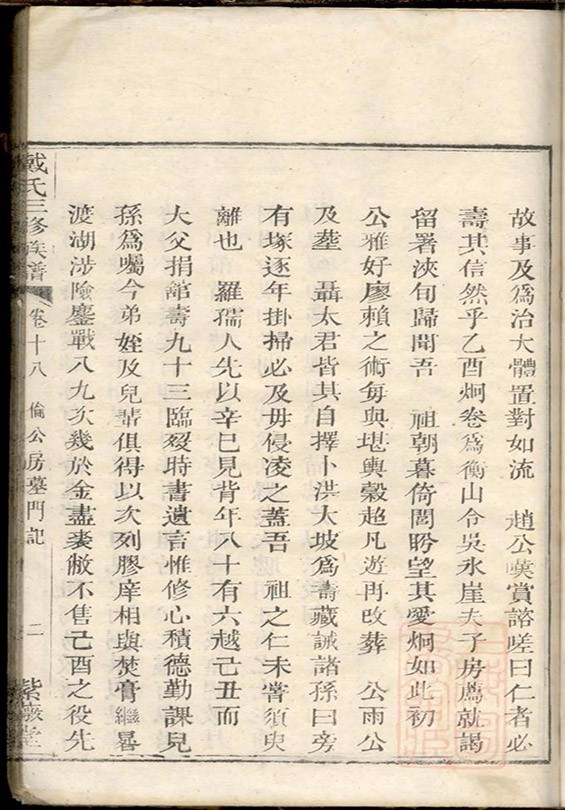 故事及爲治大體置對如流　趙公嘆賞諮嗟曰仁者必
壽其信然乎乙酉炯卷爲衡山令吳氷崖夫子房薦就謁
留署浹旬歸聞吾　祖朝暮倚閭盻望其愛炯如此初
公雅好廖賴之術每與堪輿縠趋凡遊再改葬　公雨公
及塟　聶太君皆其自擇卜洪大坡爲壽藏誡諸孫曰旁
有塚逐年掛掃必及毋侵凌之蓋吾　祖之仁未嘗須臾
離也　羅孺人先以辛巳見背年八十有六越己丑而
大父捐舘壽九十三臨殁時書遺言惟修心積德勤課兒
孫爲囑今弟姪及兒輩俱得以次列膠庠相與焚膏繼晷
渡湖涉險鏖戰八九次幾於金盡裘敝不售己酉之役先
戴氏三修族譜
卷十八
倫公房墓門記
二